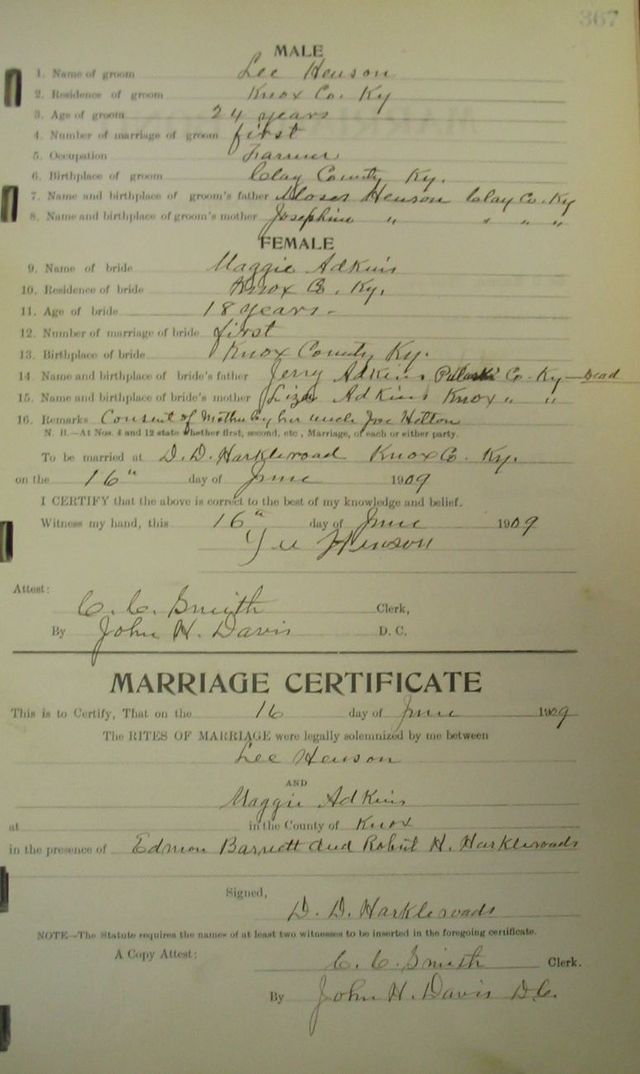 367
MALE
1. Name of groom Lee Henson
2. Residence of groom Knox Co. Ky
3. Age of groom 24 years
4. Number of marriage of groom first
5. Occupation Farmer
6. Birthplace of groom Clay County Ky.
7. Name and birthplace of groom's father Moses Henson Clay Co. Ky
8. Name and birthplace of groom's mother Josephine " " " "
FEMALE
9. Name of bride Maggie Adkins
10. Residence of bride Knox Co. Ky.
11. Age of bride 18 years.
12. Number of marriage of bride first
13. Birthplace of bride Knox County Ky.
14. Name and birthplace of bride's father Jerry Adkins Pulaski Co. Ky — Dead
15. Name and birthplace of bride's mother Liza Adkins Knox " "
16. Remarks Consent of Mother by her uncle Joe Hatton
N. B.—At Nos. 4 and 12 state whether first, second, etc., Marriage, of each or either party.
To be married at D. D. Harkleroad Knox Co. Ky.
on the 16" day of June 1909
I CERTIFY that the above is correct to the best of my knowledge and belief.
Witness my hand, this 16" day of June 1909
Lee Henson
Attest:
C. C. Smith Clerk,
By John H. Davis D. C.
MARRIAGE CERTIFICATE
This is to Certify, That on the 16 day of June 1909
The RITES OF MARRIAGE were legally solemnized by me between
Lee Henson
AND
Maggie Adkins
at in the County of Knox
in the presence of Edmon Barnett and Robert H. Harkleroads
Signed,
D. D. Harkleroads
NOTE—The Statute requires the names of at least two witnesses to be inserted in the foregoing certificate.
A Copy Attest: C. C. Smith Clerk.
By John H. Davis D.C.